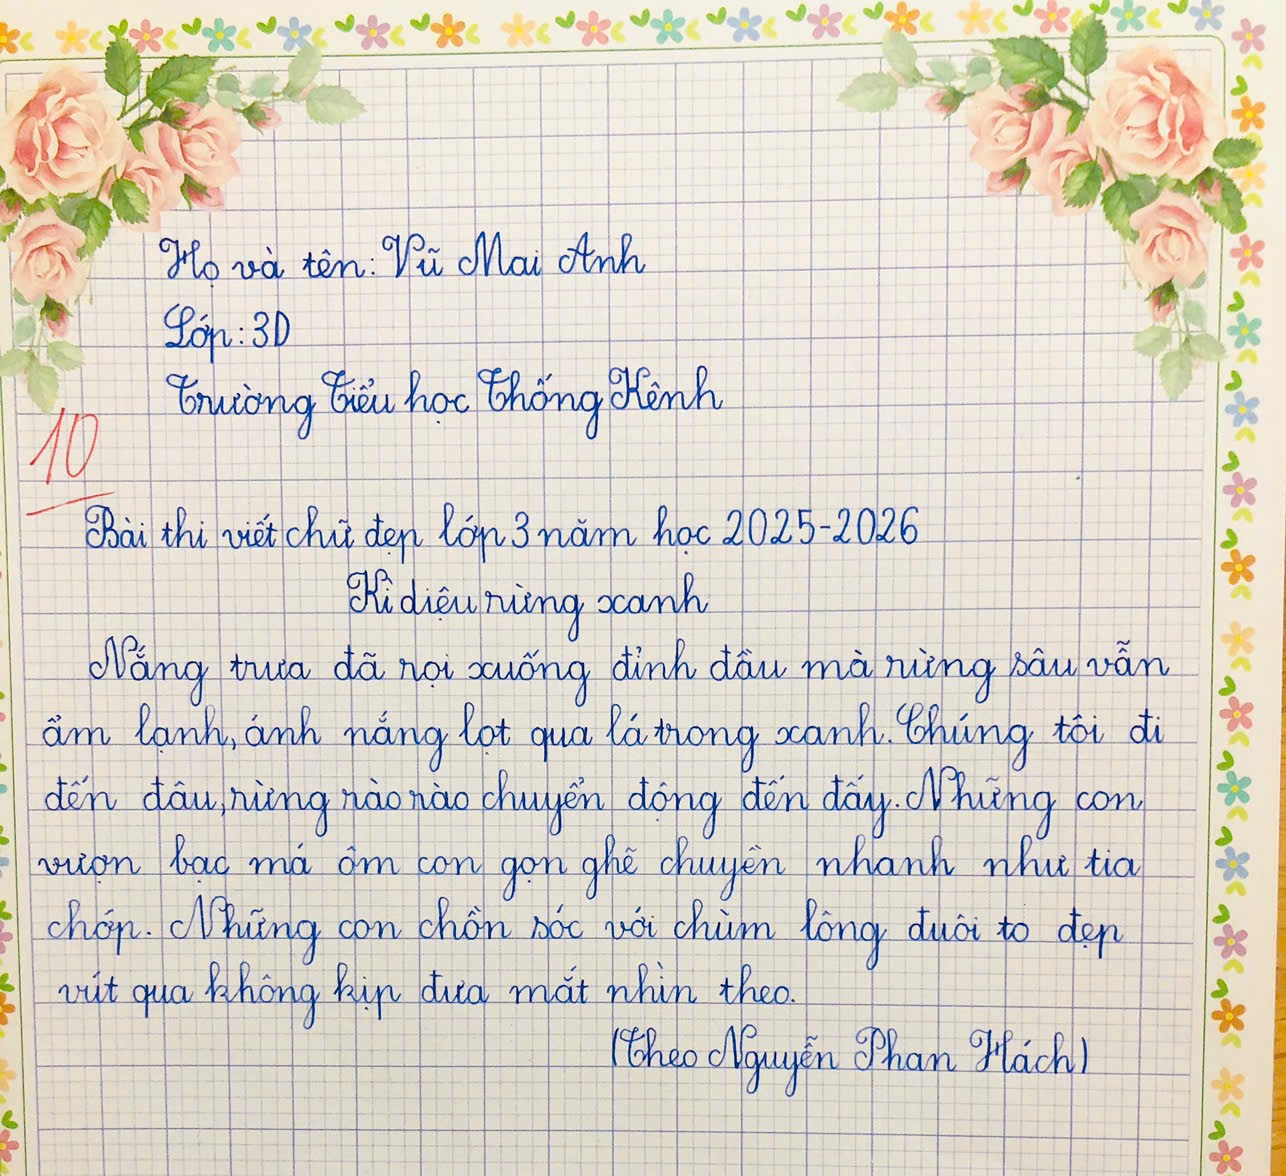 Họ và tên: Vũ Mai Anh
Lớp: 3D
Trường Tiểu học Thống Kênh
10
Bài thi viết chữ đẹp lớp 3 năm học 2025-2026
Kì diệu rừng xanh
Nắng trưa đã rọi xuống đỉnh đầu mà rừng sâu vẫn
ẩm lạnh, ánh nắng lọt qua lá trong xanh. Chúng tôi đi
đến đâu, rừng rào rào chuyển động đến đấy. Những con
vượn bạc má ôm con gọn ghẽ chuyền nhanh như tia
chớp. Những con chồn sóc với chùm lông đuôi to đẹp
vút qua không kịp đưa mắt nhìn theo.
(Theo Nguyễn Phan Hách)